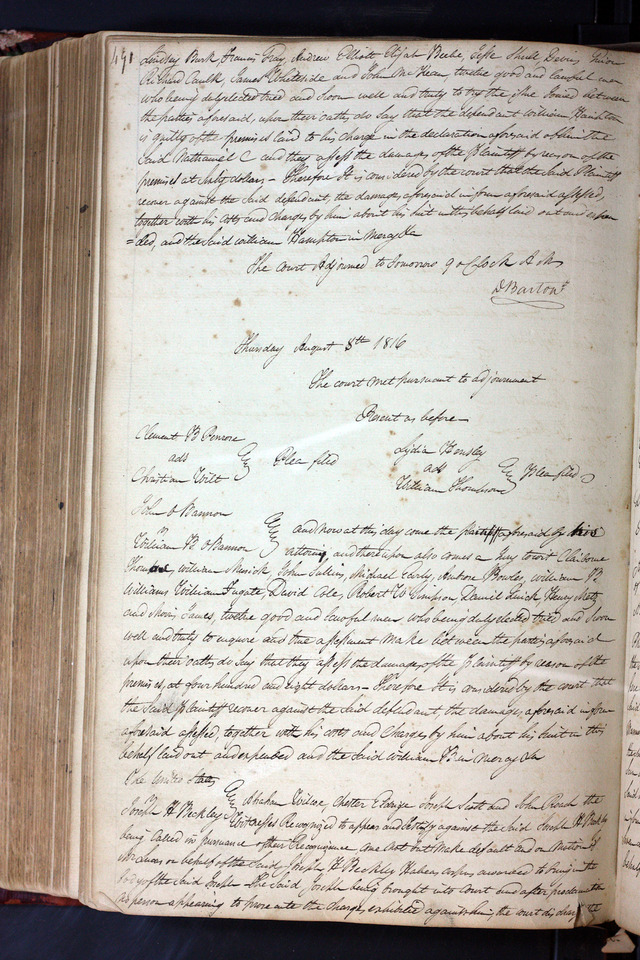 191
Lindley Burk, Francis Gray Andrew Elliott Elijah Beebe, Jesse Shull
Richard Caulk James Whiteside and John twelve good and lawful men
who being duly elected tried and sworn well and truly to try the issue Joined between
the parties aforesaid, upon their oaths, do Say that the defendant William Hampton
is guilty of the premises laid to his charge in the declaration aforesaid of him the
Said Nathaniel C and they assess the damages of the plaintiff by reason of the
premises at dollars – Therefore It is considered by the court that the said Plaintiff
recover against the Said defendant, the damages aforesaid in form aforesaid assessed,
together with his costs and charges by him about his suit in this behalf laid out and expen
=ded, and the said William Hampton in Mercy &c
The court Adjourned to tomorrow 9 o Clock A M
D Barton
Thursday August 8th 1816
The court met pursuant to adjournment
Present as before
Clement B Penrose
ads
Christian Wilt
Plea filed
Lydia Hensley
ads
William Thompson
Plea filed
John O Bannon
vs
William B O Bannon
and now at this day come the plaintiff aforesaid by his
attorney, and thereupon also comes a Jury towit Claiborne
Thomas, William Musick, John Michael Early, Andrew Bowles, William P
Williams William Fugate, David Cole, Robert W Daniel Quick Henry
and Morris James, twelve good and lawful men, who being duly elected tried and sworn
well and truly to enquire and true assessment make between the parties aforesaid
upon their oaths, do say that they assess the damages of the plaintiff by reason of the
premises, at four hundred and eight dollars – Therefore It is considered by the court that
the Said plaintiff recover against the Said defendant the damages aforesaid in form
aforesaid assessed, together with his costs and charges by him about his suit in this
behalf laid out and expended and the said William B in Mercy &c
The United States
vs
Joseph H Beckley
Abraham Chester Joseph Scott and John the
Witnesses Recognized to appear and testify against the Said Joseph H Beckley
being called in pursuance of their Recognizance came not but make default and on motion of
on behalf of the Said Joseph H Beckley Habeas corpus awarded to bring in the
body of the Said Joseph The Said Joseph being brought into court and after proclamation
no person appearing to prosecute the charges exhibited against him, the court discharge the